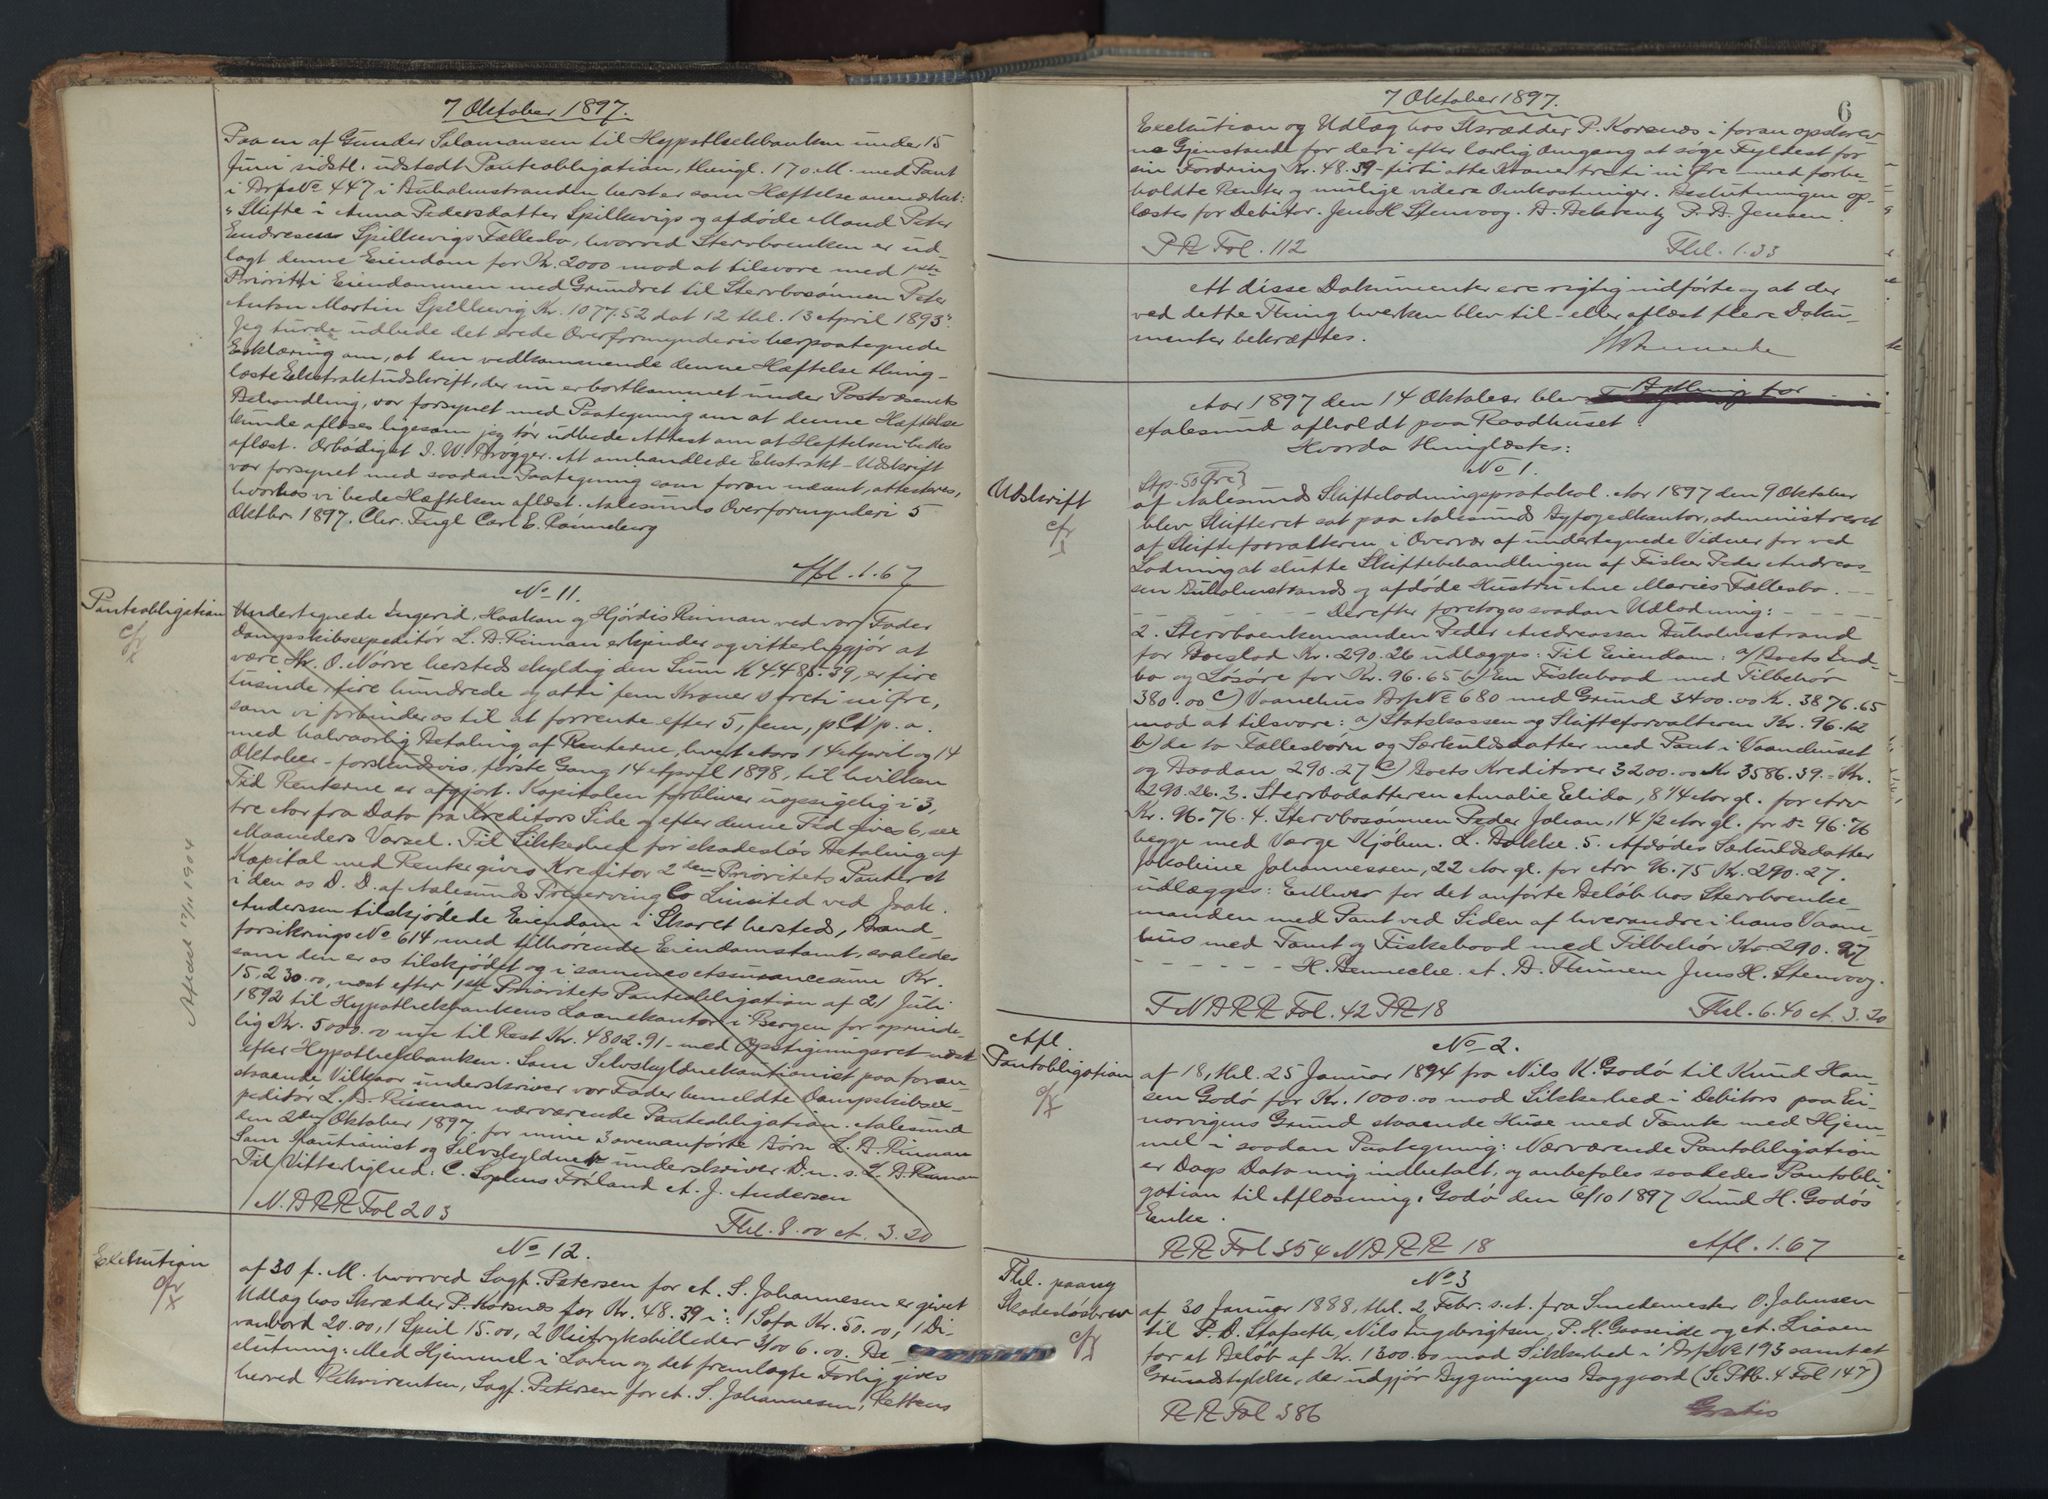 7 Oktober 1897.
Paa en af Gunder Salamonsen til Hypothekbanken under 15
Juni sidstl. udstedt Panteobligation, thingl. 17 o. M. med Pant
i Brfs No 447 i Buholmstranden herst er som Hæftelse anmærket:
"Skifte i Anna Pedersdatter Spilkevigs og afdøde Mand Peter
Endresens Spilkevigs Fællesbo, hvorved Stervboenken er ud-
lagt denne Eiendom for Kr. 2000 mod at tilsvare med 1ste
Prioritet i Eiendommen med Grundret til Stervbosønnen Peter
Anton Martin Spilkevig Kr. 1077.52 dat 12 thl. 13 April 1893".
Jeg turde udbede det ærede Overformynderis herpaategnede
Erklæring om, at den vedkommende denne Hæftelse thing-
læste Ekstraktudskrift, der nu er bortkommet under Postvæsenets
Behandling, var forsynet med Paategning om at denne Hæftelse
kunde aflæses ligesom jeg tør udbede Attest om at Heftelsen bedes
aflæst. Ærbødigst I. W. Brøgger. At omhandlede Ekstrakt-Udskrift
var forsynet med saadan Paategning som foran nævnt, attesteres,
hvorhos vi bede Hæftelsen aflæst. Aalesunds Overformynderi 5
Oktbr 1897. Chr. Fugl Carl E. Rønneberg
Afl. 1.67
No 11.
Panteobligation
Undertegnede Ingerid, Haakon og Hjørdis Rinnan ved vor Fader
Dampskibsexpeditør L. A. Rinnan erkjender og vitterliggjør at
være Hr. O. Nørve hersteds skyldig den Sum K 4485.39, er fire
tusinde, fire hundrede og otti fem Kroner og treti ni Øre,
som vi forbinder os til at forrente efter 5, fem, pCt p. a.
med halvaarlig Betaling af Renterne, hvert Aars 14 April og 14
Oktober - forskudsvis, første Gang 14 April 1898, til hvilken
Tid Renterne er afgjort. Kapitalen forbliver uopsigelig i 3,
tre Aar fra Dato fra Kreditors Side og efter denne Tid gives 6, sex
Maaneders Varsel. Til Sikkerhed for skadesløs Betaling af
Kapital med Renter gives Kreditor 2den Prioritets Panteret
i den os D. D. af Aalesunds Preserving Co Limited ved Joak.
Anderssen tilskjødede Eiendom i Skaret hersteds, Brand-
forsikrings No 614, med tilhørende Eiendomstomt, saaledes
som den er os tilskjødet og i sammes Assurancesum Kr.
15,230.00, næst efter 1ste Prioritets Panteobligation af 21 Juli
1892 til Hypothekbankens Laanekontor i Bergen for oprinde-
lig Kr. 5000.00 nu til Rest Kr. 4802.91 - med Opstigningsret næst
efter Hypothekbanken. Som Selvskyldnerkautionist paa foran-
staaende Vilkaar underskriver vor Fader bemeldte Dampskibsex-
peditør L. A. Rinnan nærværende Panteobligation. Aalesund
den 2den Oktober 1897. for mine 3 ovenanførte Børn L. A. Rinnan
Som Kautionist og Selvskyldner underskriver D. u. s. L. A. Rinnan
Til Vitterlighed: C. Sophus Førland A. J. Andersen
N. B R R Fol 203
Thl. 8.00 A. 3.20
Aflæst 17/11 1904
No 12.
Exekution
af 30 f. M. hvorved Sagf. Petersen for A. S. Johannesen er givet
Udlæg hos Skrædder P. Korsnes for Kr. 48.39 i: 1 Sofa Kr. 50.00, 1 Di-
vanbord 20.00, 1 Speil 15.00, 2 Olietryksbilleder 3/00 6.00. Be-
slutning: Med Hjemmel i Loven og det fremlagte Forlig gives
herved Rekvirenten, Sagf. Petersen for A. S. Johannesen, Rettens
7 Oktober 1897.
6
Exekution og Udlæg hos Skrædder P. Korsnes i foran opskrev-
ne Gjenstande for deri efter lovlig Omgang at søge Fyldest for
sin Fordring Kr. 48.39 - firti otte Kroner treti ni Øre - med forbe-
holdte Renter og mulige videre Omkostninger. Beslutningen op-
læstes for Debitor. Jens H. Stenvaag. A. Behrentz P. A. Jensen.
P R Fol. 112
Thl. 1.33
At disse Dokumenter ere rigtig indførte og at der
ved dette Thing hverken blev til- eller aflæst flere Doku-
menter bekræftes.
Aar 1897 den 14 Oktober blev Bything for
Aalesund afholdt paa Raadhuset
Hvorda thinglæstes:
No 1.
Stp. 50 Øre
Udskrift
af Aalesunds Skiftelodningsprotokol. Aar 1897 den 9 Oktober
blev Skifteret sat paa Aalesunds Byfogedkontor, administreret
af Skifteforvalteren i Overvær af undertegnede Vidner for ved
Lodning at slutte Skiftebehandlingen af Fisker Peder Andreas-
sen Buholmstrands og afdøde Hustru Ane Maries Fællesbo. -
Derefter foretoges saadan Udlodning:
2. Stervboenkemanden Peder Andreassen Buholmstrand
for Boeslod Kr. 290.26 udlægges: Til Eiendom: a) Boets Ind-
bo og Løsøre for Kr. 96.65 b) En Fiskebaad med Tilbehør
380.00 c) Vaanehus Brfs No 680 med Grund 3400.00 K. 3876.65
mod at tilsvare: a) Statskassen og Skifteforvalteren Kr. 96.12
b) de to Fællesbørn og Særkuldsdatter med Pant i Vaanehuset
og Baaden 290.27 c) Boets Kreditorer 3200.00 Kr 3586.39. = Kr.
290.26. 3. Stervbodatteren Amalie Elida, 8 1/4 Aar gl. for Arv
Kr. 96.76. 4. Stervbosønnen Peder Johan, 14 1/2 Aar gl. for do 96.76
begge med Værge Kjøbm. L. Bakke. 5. Afdødes Særkuldsdatter
Jokoline Johannessen, 22 Aar gl. for Arv 96.75 K. 290.27.
udlægges: Enhver for det anførte Beløb hos Stervboenke-
manden med Pant ved Siden af hverandre i hans Vaane-
hus med Tomt og Fiskebaad med Tilbehør Kr. 290.27
H. Bennecke. A. B. Thunem Jens H. Stenvaag.
F N B R R Fol. 42 P R 18
Thl. 6.40 A. 3.20
No 2.
Afl.
Pantobligation
af 18, thl. 25 Januar 1894 fra Nils K. Godø til Knud Han-
sen Godø for Kr. 1000.00 mod Sikkerhed i Debitors paa Ei-
norvigens Grund staaende Huse med Tomter med Hjem-
mel i saadan Paategning: Nærværende Pantobligation
er Dags Dato mig indbetalt, og anbefales saaledes Pantobli-
gation til Aflæsning. Godø den 6/10 1897 Knud H. Godøs
Enke.
R R Fol 354 N B R R 18
Afl. 1.67
No 3
Thl. paany
Skadesløsbrev
af 30 Januar 1888, thl. 2 Febr. s. A. fra Smedemester O. Johnsen
til P. D. Stafseth, Nils Ingebrigtsen, P. H. Gaaseide og A. Liaaen
for et Beløb af Kr. 1300.00 mod Sikkerhed i Brfs No 193 samt et
Grundstykke, der udgjør Bygningens Baggaard (Se Ptb. 4 Fol 147)
R R Fol 386
Gratis